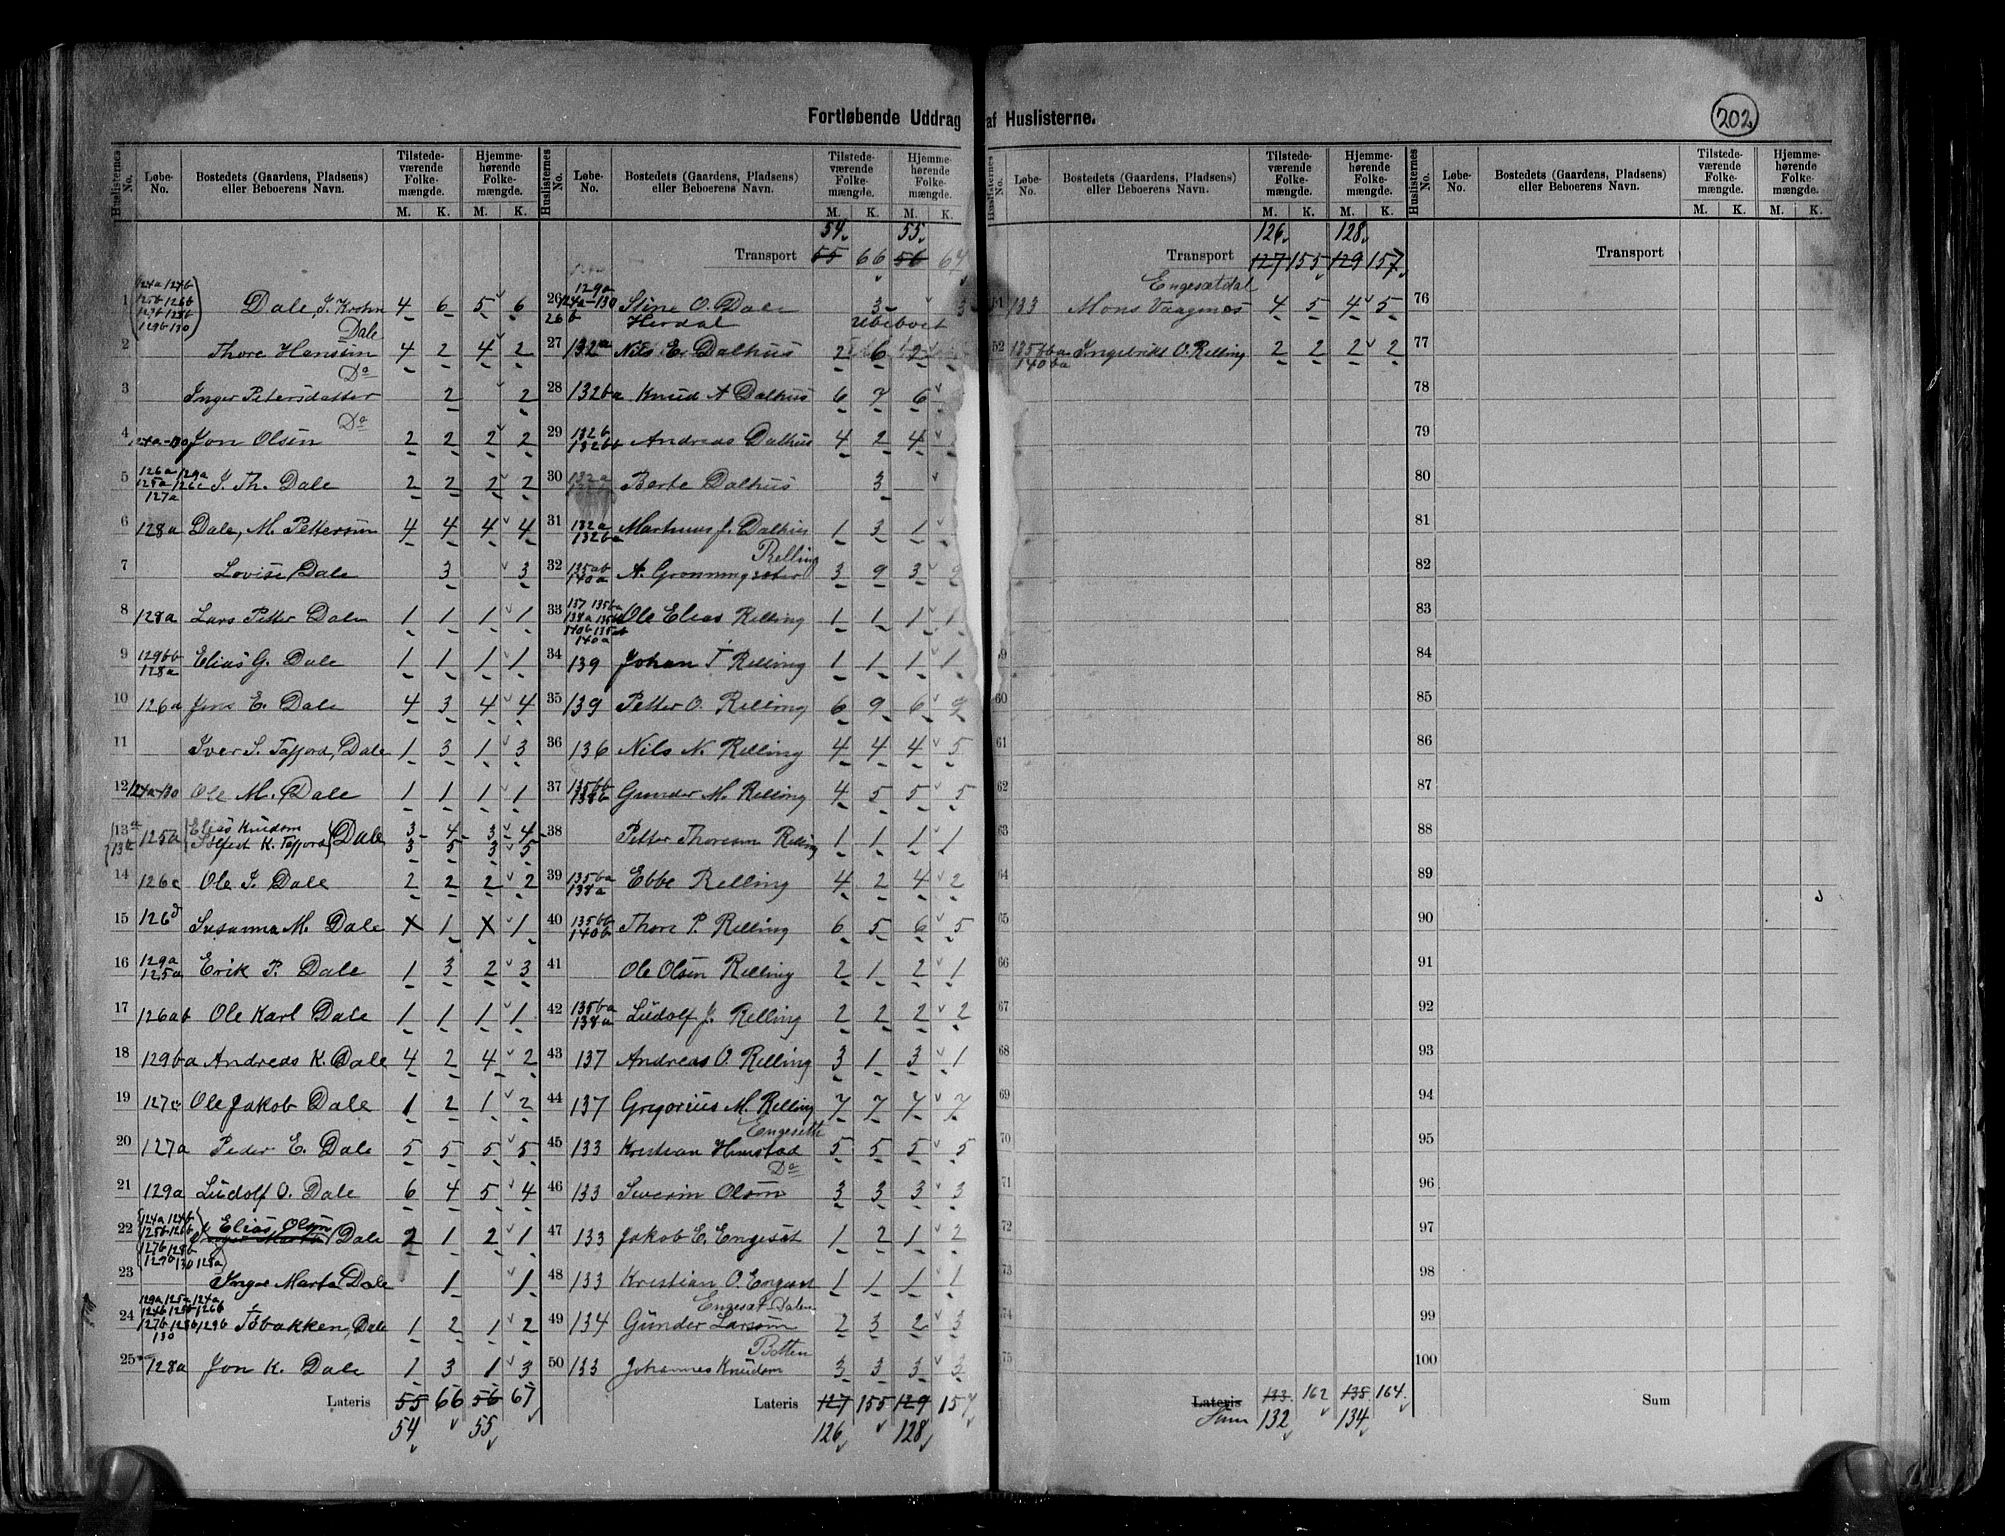 Fortløbende Uddrag af Huslisterne.
202
Huslisternes No. Løbe-No. Bostedets (Gaardens, Pladsens) eller Beboerens Navn. Tilstedeværende Folkemængde. M. K. Hjemmehørende Folkemængde. M. K.
1 124a 124b 125b 126b 127b 128b 129b 130 Dale, J. Krohn 4 6 5 6
2 Dale Thore Hansen 4 2 4 2
3 Do Inger Petersdatter 2 2
4 124a-130 Do Jon Olsen 2 2 2 2
5 126a 129a 125a 126c 127a J. Th. Dale 2 2 2 2
6 128a Dale, M. Pettersen 4 4 4 4
7 Lovise Dale 3 3
8 128a Lars Petter Dale 1 1 1 1
9 129bb 128a Elias G. Dale 1 1 1 1
10 126d Jens E. Dale 4 3 4 4
11 Iver S. Tafjord, Dale 1 3 1 3
12 124a-130 Ole M. Dale 1 1 1 1
13a 125a Elias Knudsen Dale 3 4 3 4
13b Sølfest K. Tafjord 3 5 3 5
14 126c Ole S. Dale 2 2 2 2
15 126d Susanna M. Dale X 1 X 1
16 129a 125a Erik P. Dale 1 3 2 3
17 126ab Ole Karl Dale 1 1 1 1
18 129ba Andreas K. Dale 4 2 4 2
19 127c Ole Jakob Dale 1 2 1 2
20 127a Peder E. Dale 5 5 5 5
21 129a Ludolf O. Dale 6 4 5 4
22 124a 124b 125b 126b 127b 128b 129b 130 128a Elias Olsen Dale 2 1 2 1
23 Inger Marta Dale 1 1
24 129a 125a 124a 124b 125b 126b 127b 128b 129b 130 Tøbakken, Dale 1 2 1 2
25 128a Jon K. Dale 1 3 1 3
Lateris 55 66 56 67
54 55
Huslisternes No. Løbe-No. Bostedets (Gaardens, Pladsens) eller Beboerens Navn. Tilstedeværende Folkemængde. M. K. Hjemmehørende Folkemængde. M. K.
54 55
Transport 55 66 56 67
26 129a 124a-130 Stine O. Dale 3 3
26b Herdal Ubeboet
27 132a Nils E. Dalhus 2 6 2
28 132ba Knud A Dalhus 6 7 6
29 132b 132bb Andreas Dalhus 4 2 4
30 132a Berte Dalhus 3
31 132a 132ba Martinus J. Dalhus 1 3 1
32 135ab 140a Relling A. Grønningsæter 3 9 3 9
33 137 135ba 138a 140b 140a Ole Elias Relling 1 1 1 1
34 139 Johan T Relling 1 1 1 1
35 139 Petter O. Relling 6 9 6 9
36 136 Nils N. Relling 4 4 4 5
37 135bb 138b Gunder M. Relling 4 5 5 5
38 Petter Thoresen Relling 1 1 1 1
39 135ba 138a Ebbe Relling 4 2 4 2
40 135bb 140b Thore P. Relling 6 5 6 5
41 Ole Olsen Relling 2 1 2 1
42 135ba 138a Ludolf J. Relling 2 2 2 2
43 137 Andreas O. Relling 3 1 3 1
44 137 Gregorius M. Relling 7 7 7 7
45 133 Engesette Kristian Hunstad 5 5 5 5
46 133 Do Severin Olsen 3 3 3 3
47 133 Jakob E. Engeset 1 2 1 2
48 133 Kristian O. Engeset 1 1 1 1
49 134 Engesæt Dalen Gunder Larsen 2 3 2 3
50 133 Botten Johannes Knudsen 3 3 3 3
Lateris 127 155 129 157
126 128
Huslisternes No. Løbe-No. Bostedets (Gaardens, Pladsens) eller Beboerens Navn. Tilstedeværende Folkemængde. M. K. Hjemmehørende Folkemængde. M. K.
126 128
Transport 127 155 129 157
51 133 Engesætdal Mons Vaagnes 4 5 4 5
52 135bba 140ba Ingebrikt O. Relling 2 2 2 2
59
60
61
62
63
64
65
66
67
68
69
70
71
72
73
74
75
Lateris 133 162 135 164
Sum 132 134
Huslisternes No. Løbe-No. Bostedets (Gaardens, Pladsens) eller Beboerens Navn. Tilstedeværende Folkemængde. M. K. Hjemmehørende Folkemængde. M. K.
Transport
76
77
78
79
80
81
82
83
84
85
86
87
88
89
90
91
92
93
94
95
96
97
98
99
100
Sum